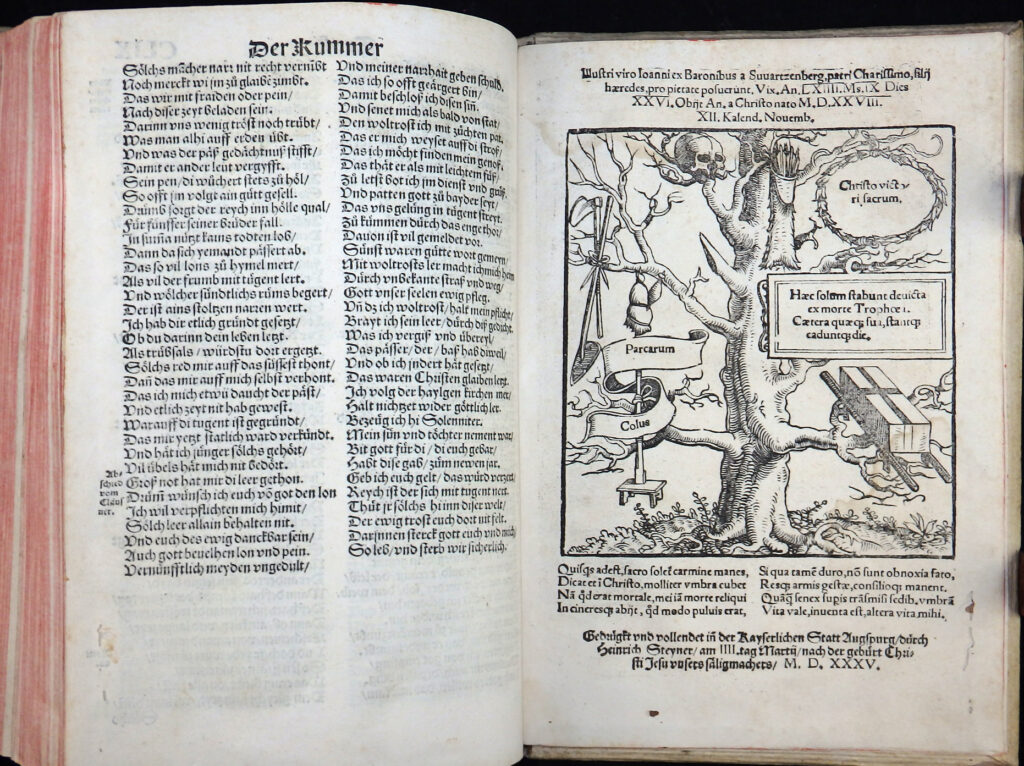 Der Kummer
Sölchs mãcher narr nit recht vernĩbt
Noch merckt wijm zů glaibẽ zimbt.
Das wir mit fraiden oder pein/
Nach diser zeyt beladen sein.
Darinn vns wenig tröst noch trübt/
Was man alhi auff erden übt.
Vnd was der päß gedächtnuß stifft/
Damit er ander leut vergyfft.
Sein pen/di wůchert stets zů höl/
So offt jm volgt ain gütt gesell.
Drũmb sorgt der reych inn hölle qual/
Für fünffer seiner brüder fall.
In sum̃a nützt kains todten lob/
Dann da sich yemandt pässert ab.
Das so vil lons zů hymel mert/
Als vil der frumb mit tůgent lert.
Vnd wölcher sündtlichs růms begert/
Der ist ains stoltzen narren wert.
Ich hab dir etlich gründt gesetzt/
Ob du darinn dein leben letzt.
Als trübsals/würdstu dort ergetzt.
Sölchs red mir auff das süssest thont/
Dañ das mir auff mich selbst verhont.
Das ich mich etwü daucht der päst/
Vnd etlich zeyt nit hab gewest.
Warauff di tugent ist gegründt/
Das mir yetzt statlich ward verkündt.
Vnd hät ich jünger sölchs gehört/
Vil übels hät mich nit bedört.
Groß not hat mir di leer gethon.
Drum̃ wünsch ich euch võ got den lon
Ich wil verpflichten mich himit/
Sölch leer allain behalten nit.
Vnd euch des ewig danckbar sein/
Auch gott bevelhen lon vnd pein.
Vernünfftlich meyden vngedult/
Ab-
schied
vom
Claus
ner.
Vnd meiner narzhait geben schuld.
Das ich so offt geärgert bin/
Damit beschloß ich disen sin.
Vnd senet mich als bald von stat/
Den woltrost ich mit züchten pat.
Das er mich weyset auff di stroß/
Das ich möcht finden mein genoß.
Das thät er als mit leichtem füß/
Zů letst bot ich jm dienst vnd grůß.
Vnd patten gott zů bayder seyt/
Das vns gelüng in tůgent streyt.
Zů kum̃men durch das enge thor/
Dauon ist vil gemeldet vor.
Sünst waren gütte wort gemeyn/
Mit woltrosts ler macht ich mich heim
Durch vnbekante straß vnd weg/
Gott vnser seelen ewig pfleg.
Vñ dz ich woltrost/halt mein pflicht/
Brayt ich sein leer/durch diß gedicht.
Was ich vergiß vnd übereyl/
Das pässer/der/baß hab di weil/
Vnd ob ich jndert hät gesetzt/
Das waren Christen glaiben letzt.
Ich volg der haylgen kirchen mer/
Halt nichtzet wider göttlich ler.
Bezeüg ich hi Solenniter.
Mein sün vnd töchter nement war/
Bit gott für di/di euch gebar/
Habt dise gab/zům newen jar.
Geb ich euch gelt/das würd verzert/
Reych ist der sich mit tugent nert.
Thüt jr sölchs hi inn diser welt/
Der ewig trost euch dort nit felt.
Darjnnen sterck gott euch vnd mich/
So leb/vnd sterb wir sicherlich.
Illustri viro Ioanni ex Baronibus a Suuartzenberg, patri Charissimo, filij
hæredes, pro pietate posuerunt. Vix. An. LXIIII. Ms. IX Dies
XXVI. Obijt An. a Christo nato M.D.XXVIII.
XII. Kalend. Nouemb.
Christo vict⸗
ri sacrum.
Hæc solum stabunt deuicta
ex morte Trophœa.
Cætera quæq; sua, stantq;
caduntq; die.
Parcarum
Colus
Quisq́s adest, sacro solet̃ carmine manes,
Dicat et ĩ Christo, molliter vmbra cubet
Nã q̃d erat mortale, mei iã morte reliqui
In cineresq; abijt, q̃d modo puluis erat,
Si qua tamẽ duro, nõ sunt obnoxia fato,
Resq; armis gestæ, consilioq; manent.
Quãq̃ senex supis trãsmisi sedib. vmbrã
Vita vale, inuenta est, altera vita mihi.
Gedruckt vnd vollendet iñ der Kayserlichen Statt Augspurg/dürch
Heinrich Steyner/am IIII. tag Martij/nach der gebürt Chri-
sti Jesu vnsers säligmachers/ M. D. XXXV.